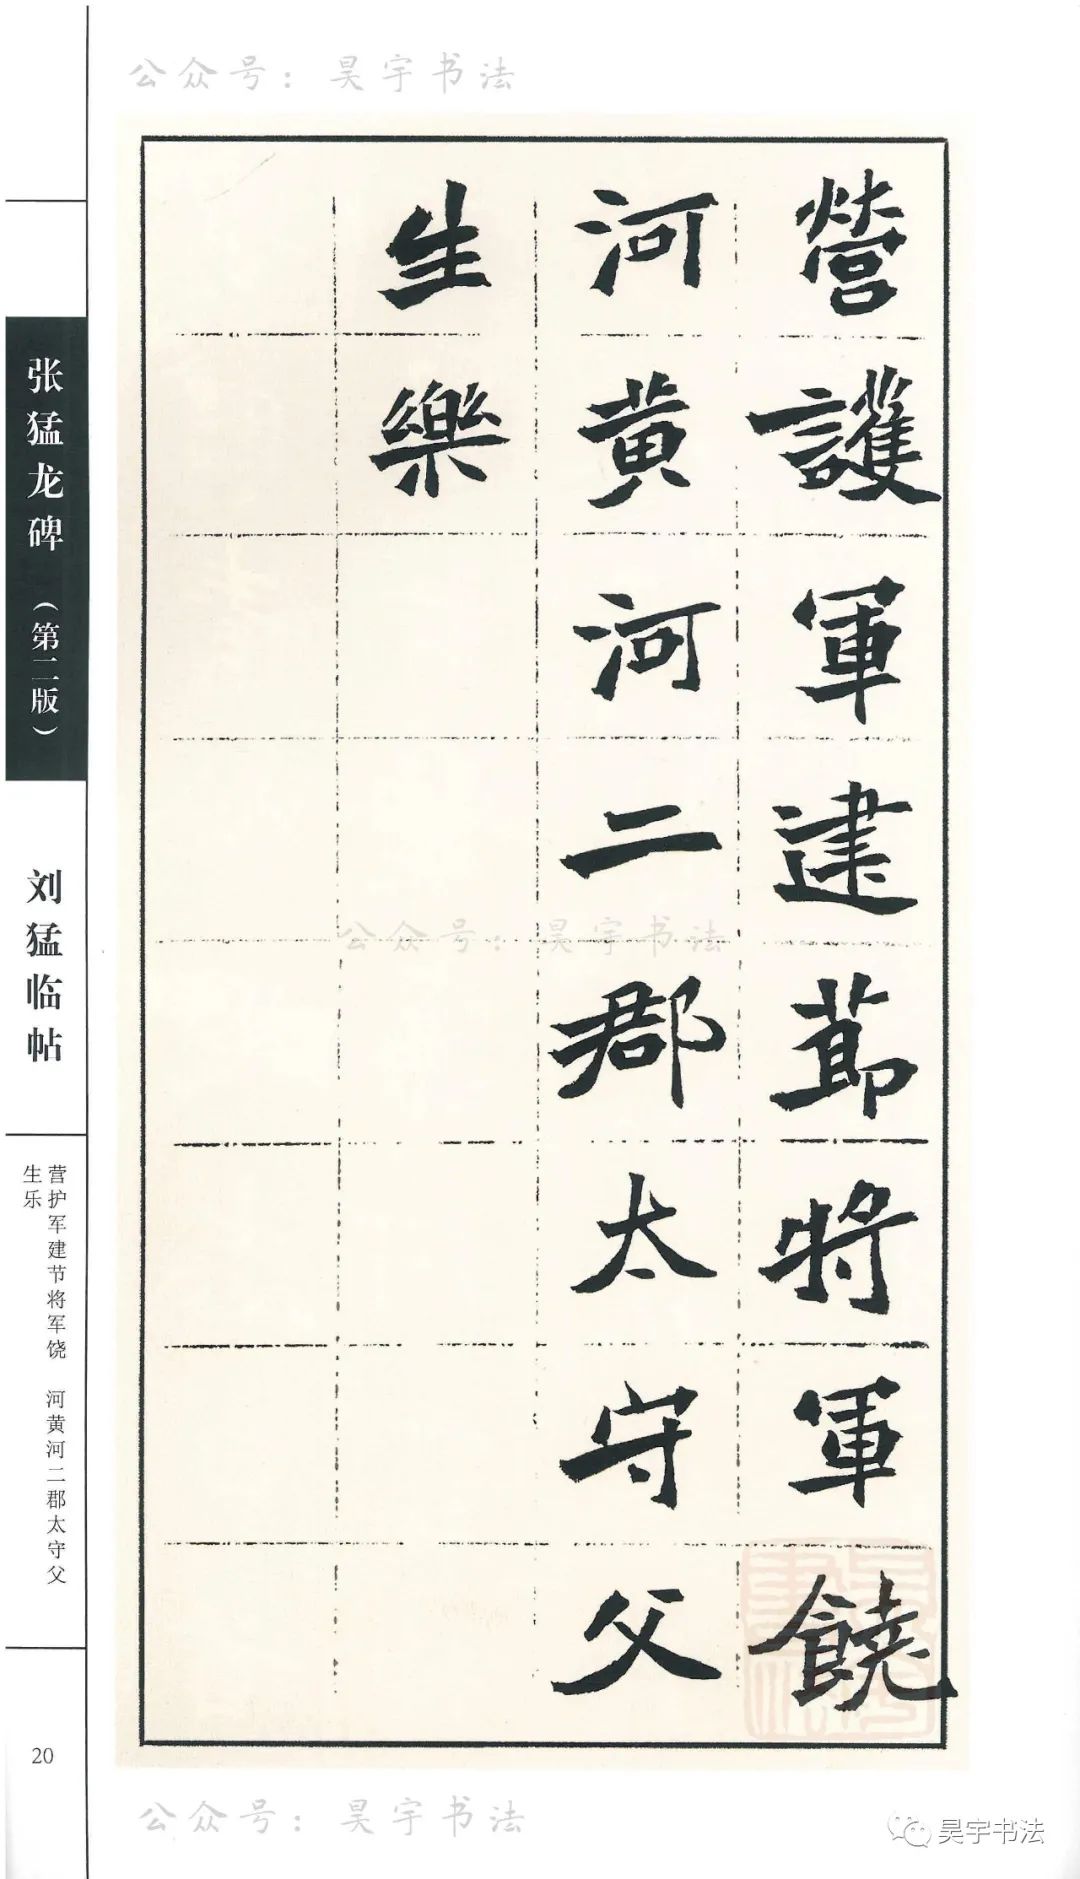 公众号：昊宇书法
營護軍建莭將軍饒
河黄河二郡太守父
生樂
张猛龙碑（第二版）
刘猛临帖
营护军建节将军饶 河黄河二郡太守父
生乐
20
公众号：昊宇书法
公众号：昊宇书法
昊宇书法